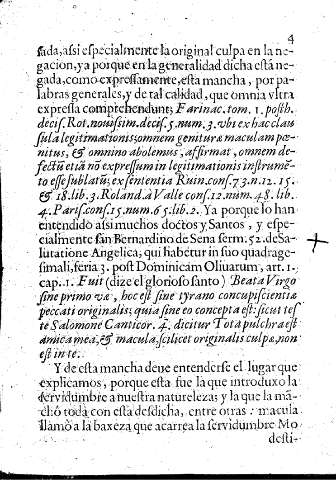 4
sada, assi especialmente la original culpa en la ne-
gacion, y a porque en la generalidad dicha està ne-
gada, como expressamente, esta mancha, por pa-
labras generales, y de tal calidad, que omnia vltra
expressa comprehendunt; Farinac. tom. 1. posth.
decis. Rot. nouissim. decis. 5. num. 3. vbi ex hac clau
sula legitimationis; omnem genituræ maculam pœ-
nitus, & omnino abolemus, affirmat, omnem de-
fectū etiā nō expressum in legitimationis instrumē-
to esse sublatū; ex sententia Ruin. cons. 73. n. 12. 15.
& 18. lib. 3. Roland. à Valle cons. 12. num. 48. lib.
4. Paris. cons. 15. num. 65. lib. 2. Ya porque lo han
entendido assi muchos doctos y Santos, y espe-
cialmente san Bernardino de Sena serm. 52. de Sa-
lutatione Angelica, qui habetur in suo quadrage-
simali, feria 3. post Dominicam Oliuarum, art. 1.
cap. 1. Fuit (dize el glorioso santo) Beata Virgo
sine primo væ, hoc est sine tyrano concupiscientiæ
peccati originalis; quia sine eo concepta est: sicut tes
te Salomone Canticor. 4. dicitur Tota pulchra est
amica mea, & macula, scilicet originalis culpæ, non
est in te.
Y de esta mancha deue entenderse el lugar que
explicamos, porque esta fue la que introduxo la
seruidumbre a nuestra naturaleza; y la que la mā-
chò toda con esta desdicha, entre otras: macula
llamò a la baxeza que acarrea la seruidumbre Mo
desti-